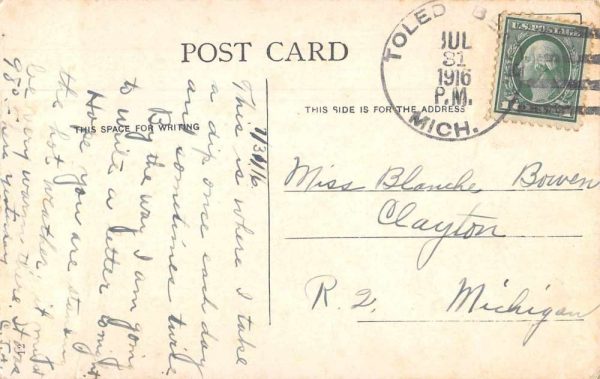 POST CARD
THIS SPACE FOR WRITING
THIS SIDE IS FOR THE ADDRESS
TOLEDO B
JUL
31
1916
P.M.
MICH.
U.S. POSTAGE
7/31/16
This is where I take
a dip once each day
and sometimes twice.
By the way, I am going
to write a letter tonight
Hope you are standing
the hot weather, it must
be very warm there. It was
98° here yesterday
Miss Blanche Bowen
Clayton
R. 2. Michigan